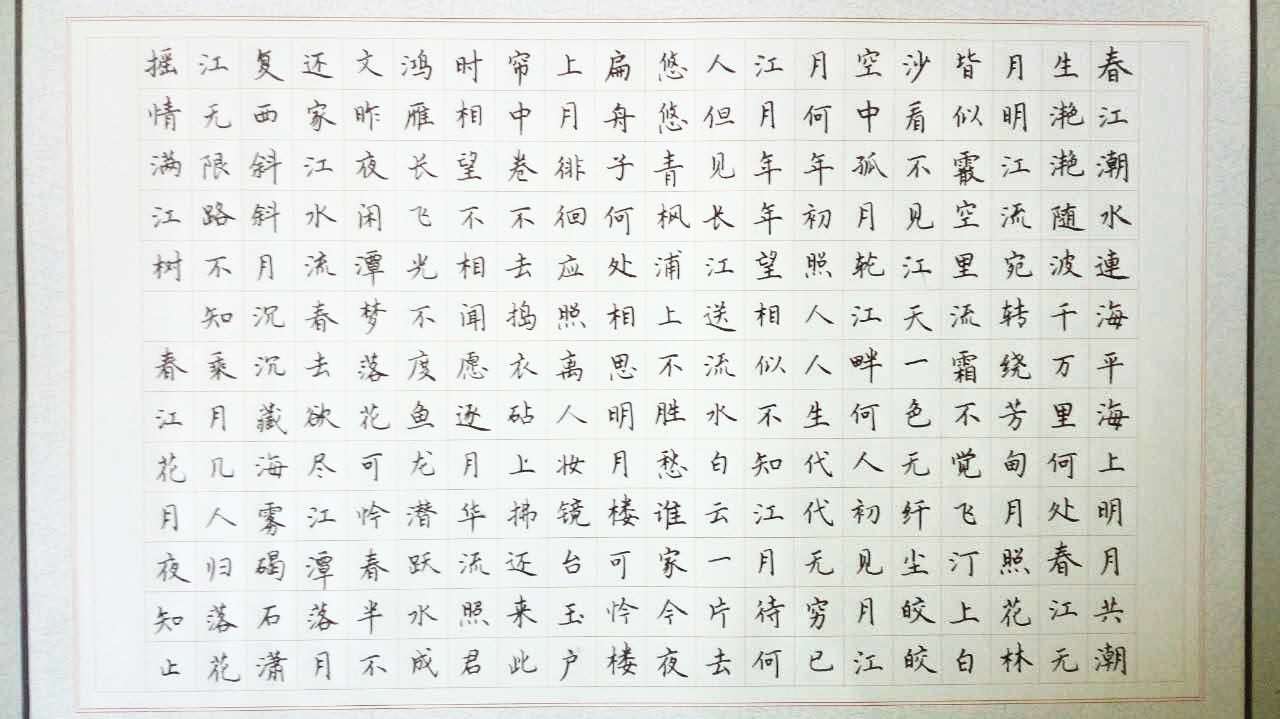 春江潮水連海平海上明月共潮
生滟滟随波千万里何处春江无
月明江流宛转绕芳甸月照花林
皆似霰空里流霜不觉飞汀上白
沙看不见江天一色无纤尘皎皎
空中孤月乾江畔何人初见月江
月何年初照人人生代代无穷已
江月年年望相似不知江月待何
人但见长江送流水白云一片去
悠悠青枫浦上不胜愁谁家今夜
扁舟子何处相思明月楼可怜楼
上月徘徊应照离人妆镜台玉户
帘中卷不去捣衣砧上拂还来此
时相望不相闻愿逐月华流照君
鸿雁长飞光不度鱼龙潜跃水成
文昨夜闲潭梦落花可怜春半不
还家江水流春去欲尽江潭落月
复西斜斜月沉沉藏海雾碣石潇
江无限路不知乘月几人归落花
摇情满江树 春江花月夜知止